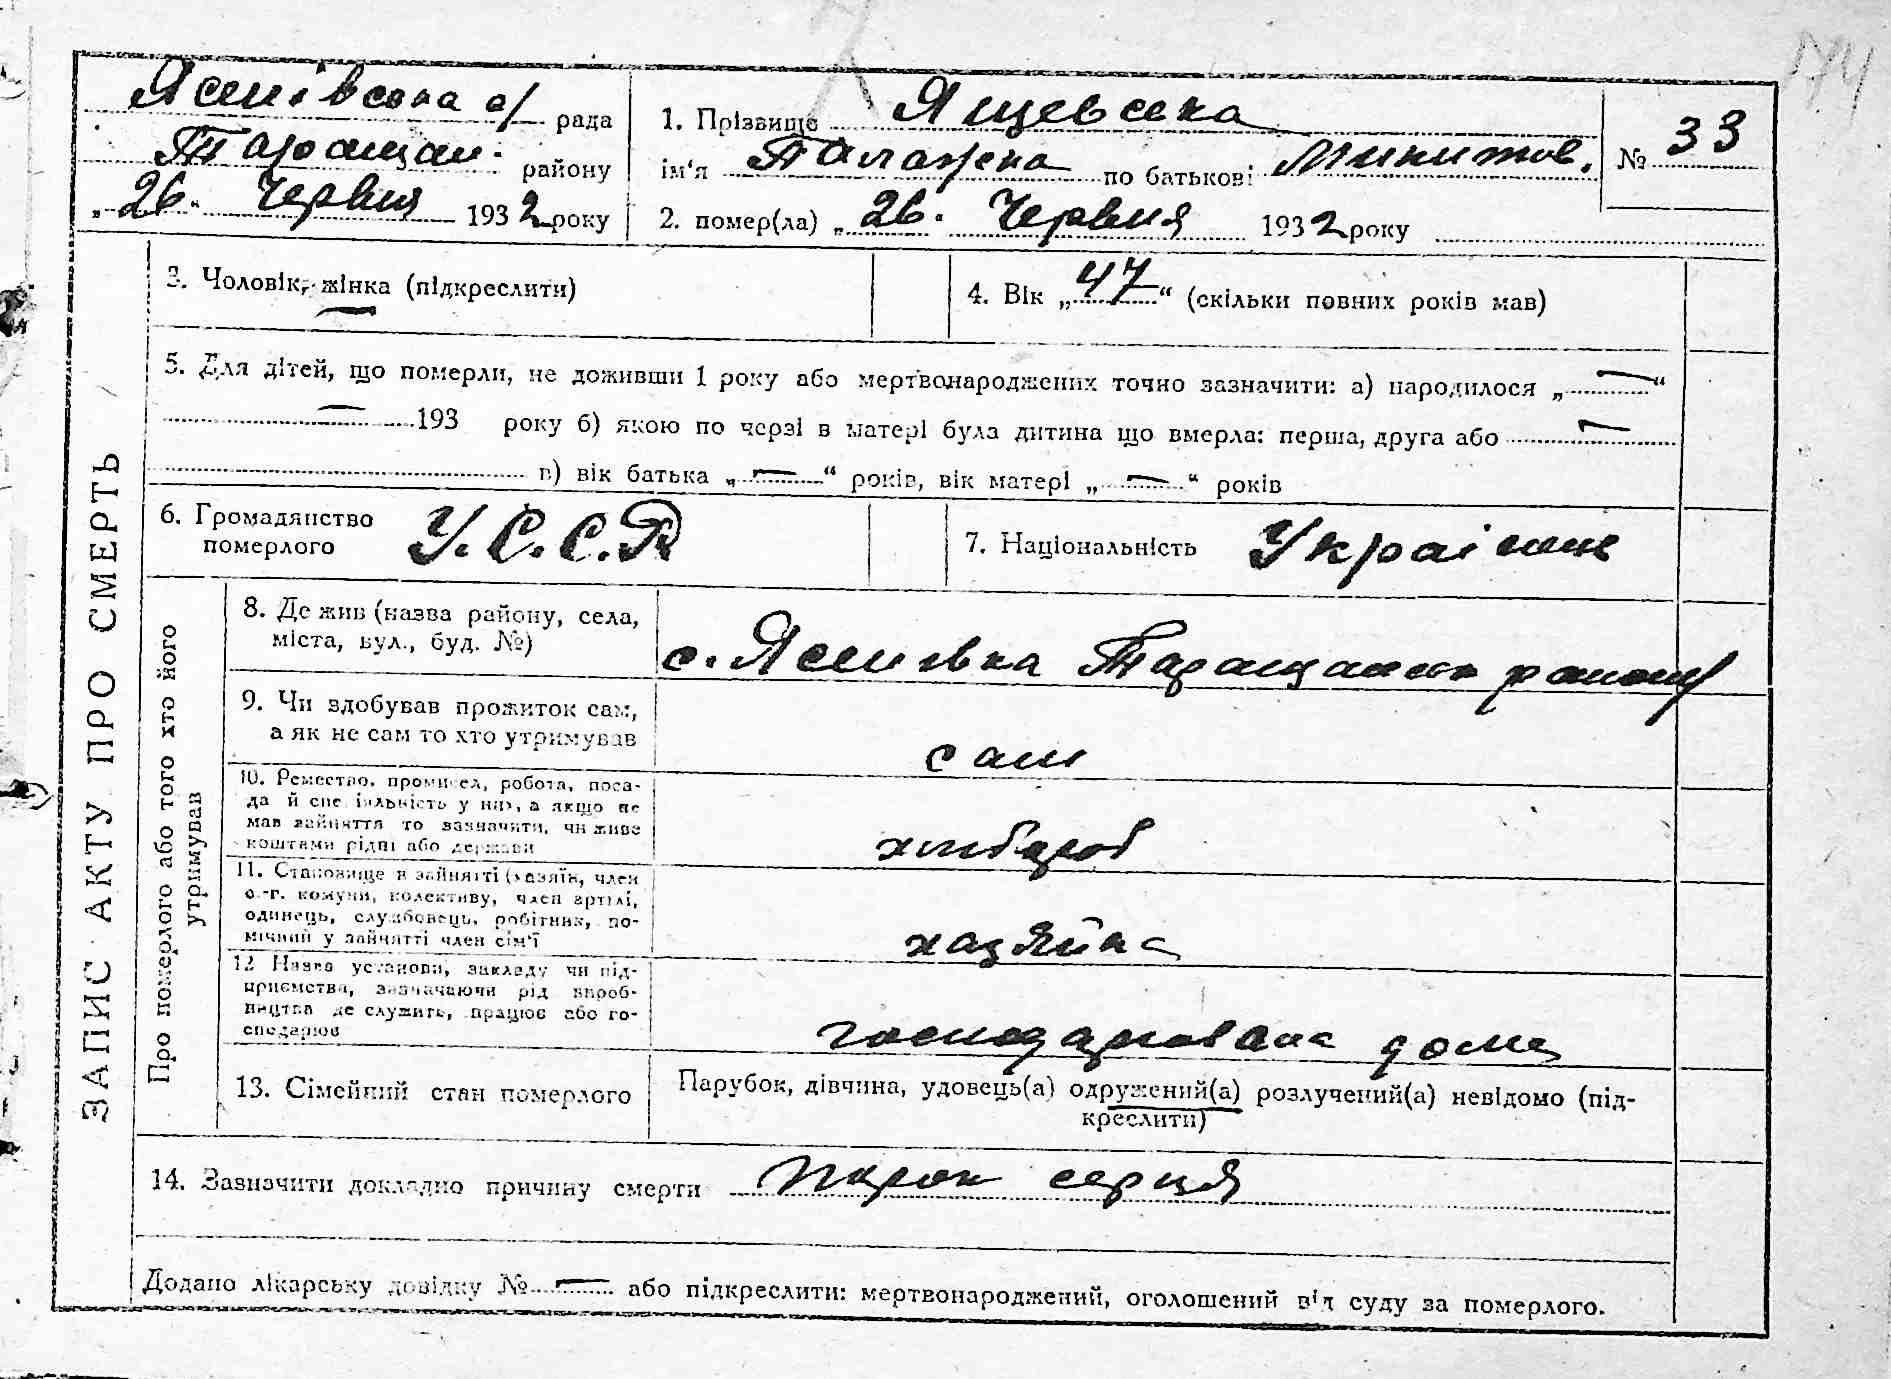 Яснівська с/ рада
Таращан. району
„26“ Червня 1932 року
1. Прізвище Ящевська
ім'я Палажка по батькові Микитов.
2. помер(ла) „26. Червня 1932 року
№ 33
3. Чоловік, жінка (підкреслити)
4. Вік „47“ (скільки повних років мав)
5. Для дітей, що померли, не доживши 1 року або мертвонароджених точно зазначити: а) народилося „—“
— 193 року б) якою по черзі в матері була дитина що вмерла: перша, друга або —
в) вік батька „—“ років, вік матері „—“ років
6. Громадянство
померлого
У.С.С.Р
7. Національність
ЗАПИС АКТУ ПРО СМЕРТЬ
Про померлого або того хто його
утримував
8. Де жив (назва району, села,
міста, вул., буд. №)
с. Яснівка району
9. Чи здобував прожиток сам,
а як не сам то хто утримував
сам
10. Ремество, промисел, робота, поса-
да й спеціяльність у них, а якщо не
мав зайняття то зазначити, чи живе
коштами рідні або держави
хлібороб
11. Становище в зайнятті (хазяїн, член
с.-г. комуни, колективу, член артілі,
одинець, службовець, робітник, по-
мічний у зайнятті член сім'ї
хазяйка
12 Назва установи, закладу чи під-
приємства, зазначаючи рід вироб-
ництва де служить, працює або го-
сподарює
дома
13. Сімейний стан померлого
Парубок, дівчина, удовець(а) одружений(а) розлучений(а) невідомо (під-
креслити)
14. Зазначити докладно причину смерти порок серця
Додано лікарську довідку № — або підкреслити: мертвонароджений, оголошений від суду за померлого.